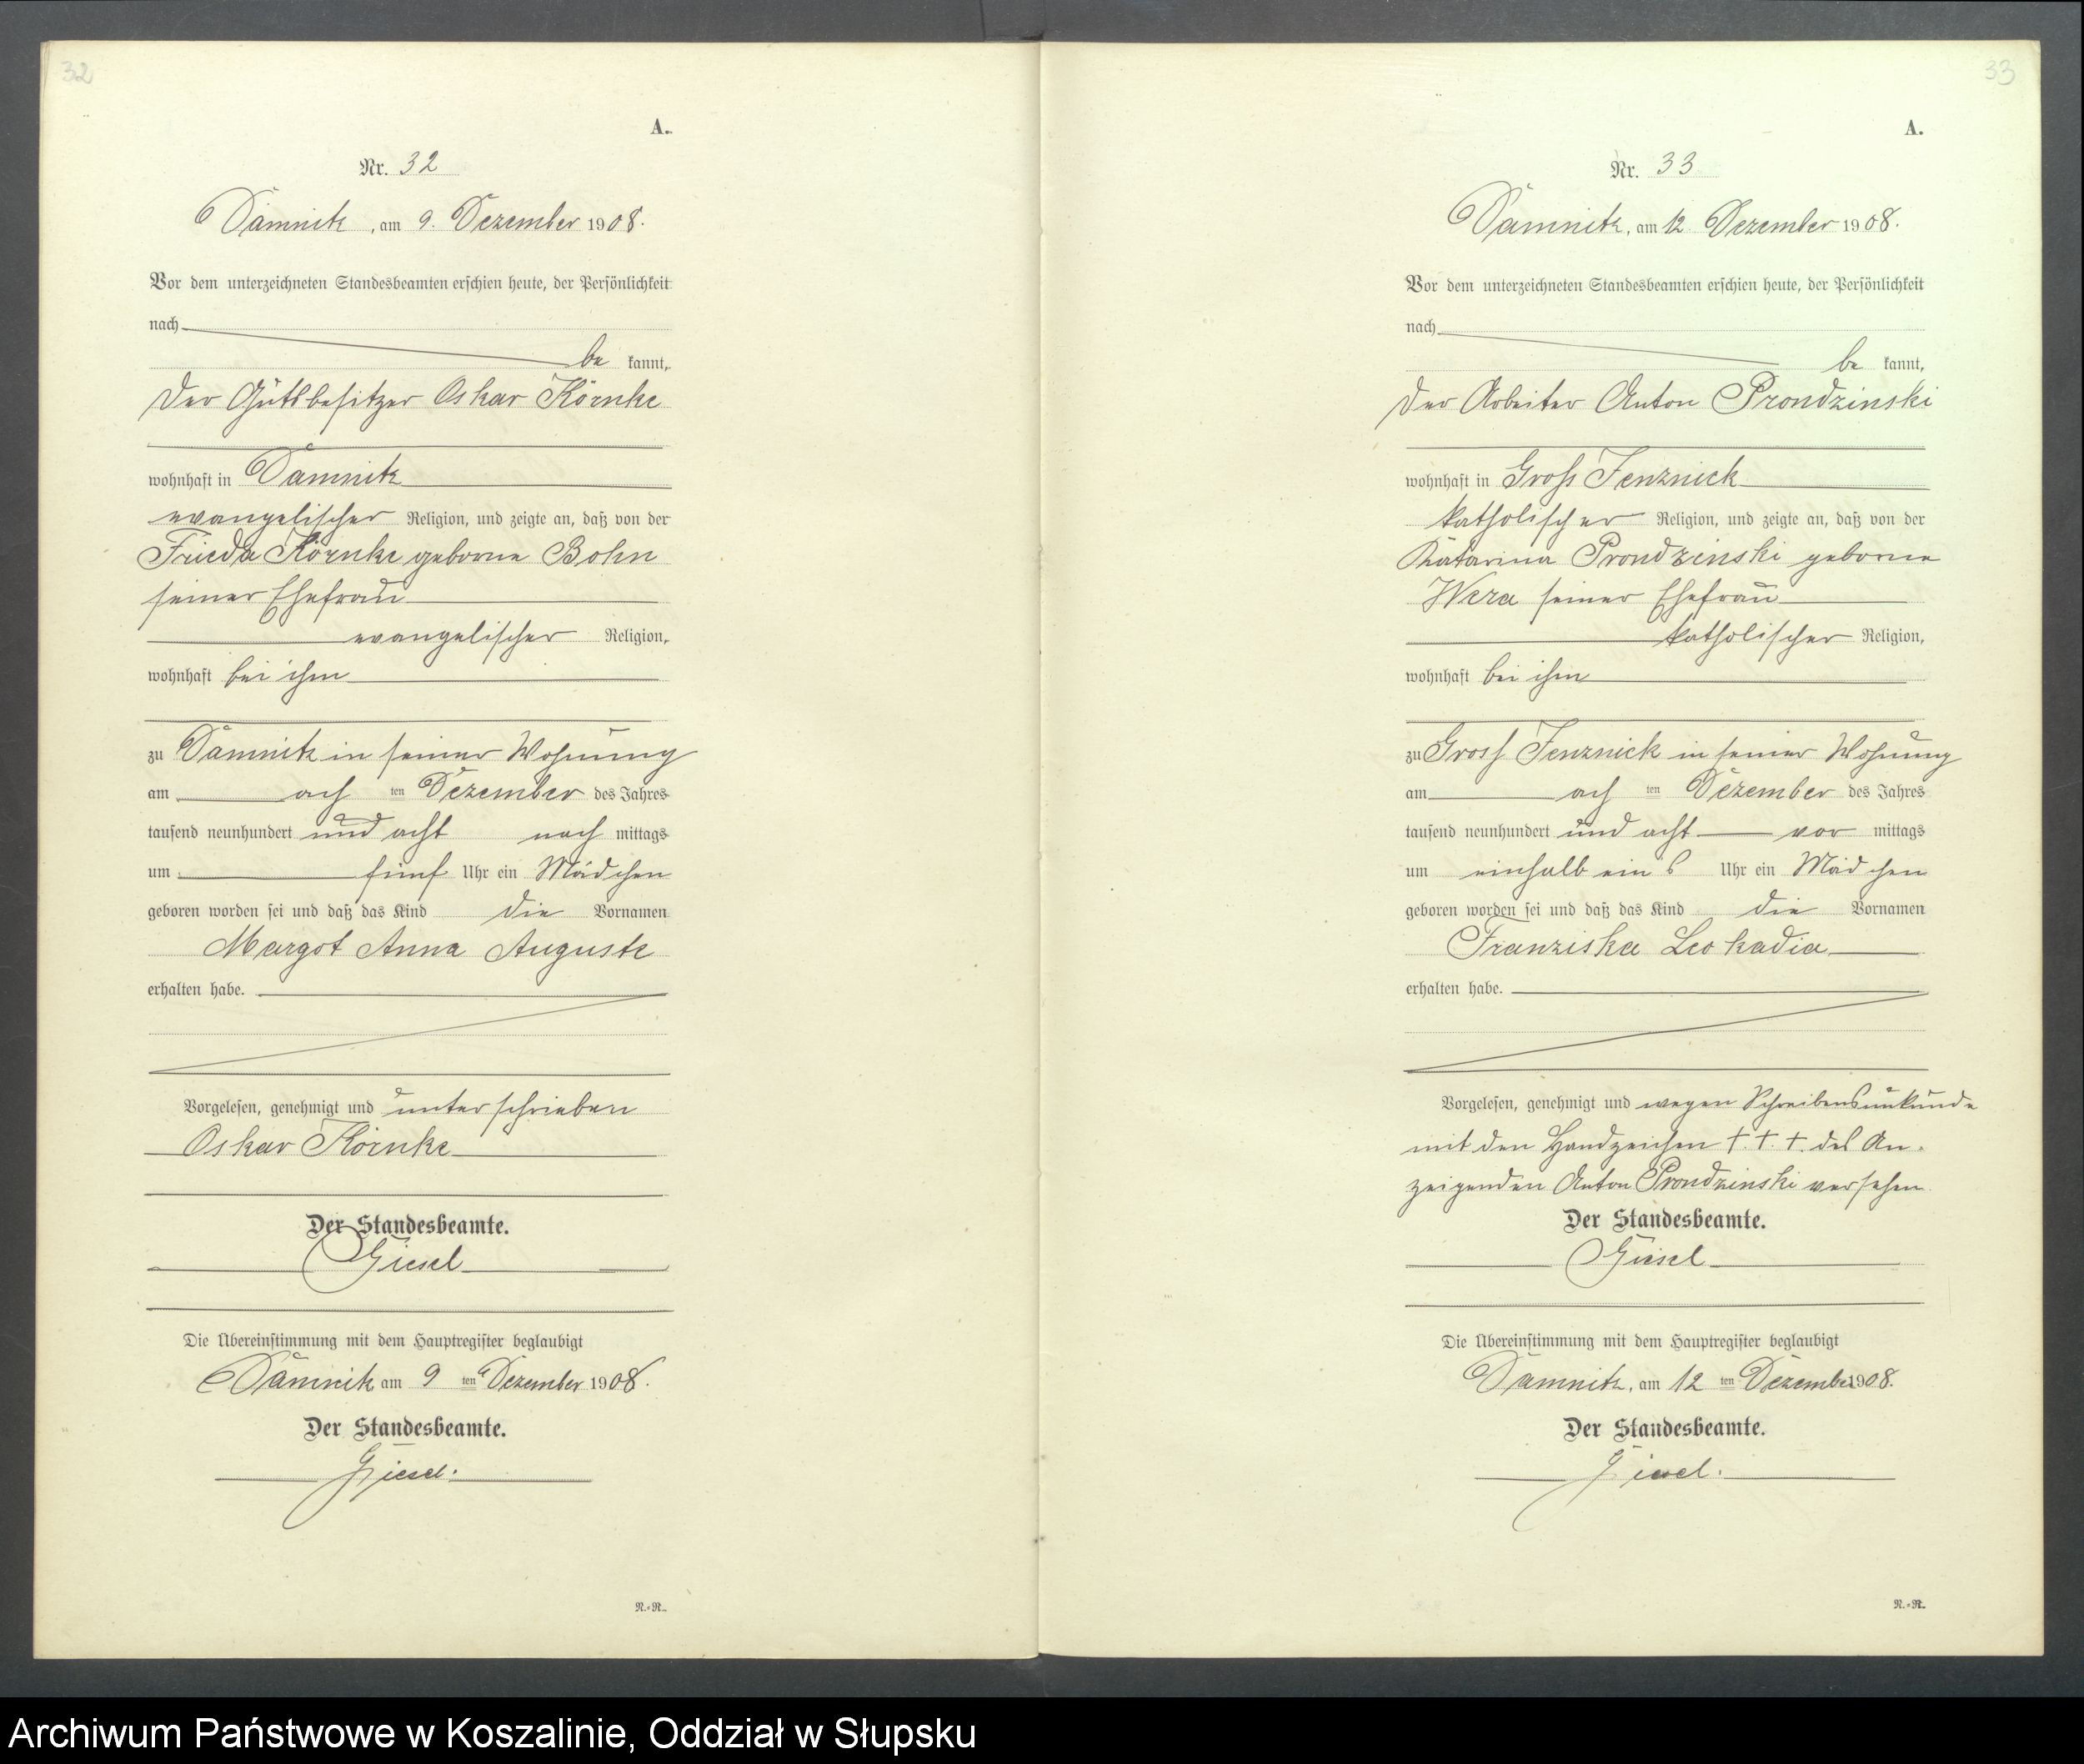 32
A.
Nr. 32
Damnitz, am 9. Dezember 1908.
Vor dem unterzeichneten Standesbeamten erschien heute, der Persönlichkeit
nach
be kannt,
der Gutsbesitzer Oskar Körnke
wohnhaft in Damnitz
evangelischer Religion, und zeigte an, daß von der
Frieda Körnke geborne Bohn
seiner Ehefrau
evangelischer Religion,
wohnhaft bei ihm
zu Damnitz in seiner Wohnung
am ach ten Dezember des Jahres
tausend neunhundert und acht nach mittags
um fünf Uhr ein Mädchen
geboren worden sei und daß das Kind die Vornamen
Margot Anna Auguste
erhalten habe.
Vorgelesen, genehmigt und unterschrieben
Oskar Körnke
Der Standesbeamte.
Giesel
Die Übereinstimmung mit dem Hauptregister beglaubigt
Damnitz am 9 ten Dezember 1908.
Der Standesbeamte.
Giesel.
R.-R.
33
A.
Nr. 33
Damnitz, am 12 Dezember 1908.
Vor dem unterzeichneten Standesbeamten erschien heute, der Persönlichkeit
nach
be kannt,
der Arbeiter Anton Prondzinski
wohnhaft in Gross Jenznick
katholischer Religion, und zeigte an, daß von der
Katarina Prondzinski geborne
Wera seiner Ehefrau
katholischer Religion,
wohnhaft bei ihm
zu Gross Jenznick in seiner Wohnung
am ach ten Dezember des Jahres
tausend neunhundert und acht vor mittags
um einhalb eins Uhr ein Mädchen
geboren worden sei und daß das Kind die Vornamen
Franziska Leokadia
erhalten habe.
Vorgelesen, genehmigt und wegen Schreibensunkunde
mit den Handzeichen †. †. †. des An-
zeigenden Anton Prondzinski versehen
Der Standesbeamte.
Giesel
Die Übereinstimmung mit dem Hauptregister beglaubigt
Damnitz, am 12 ten Dezember 1908.
Der Standesbeamte.
Giesel.
R.-R.
Archiwum Państwowe w Koszalinie, Oddział w Słupsku